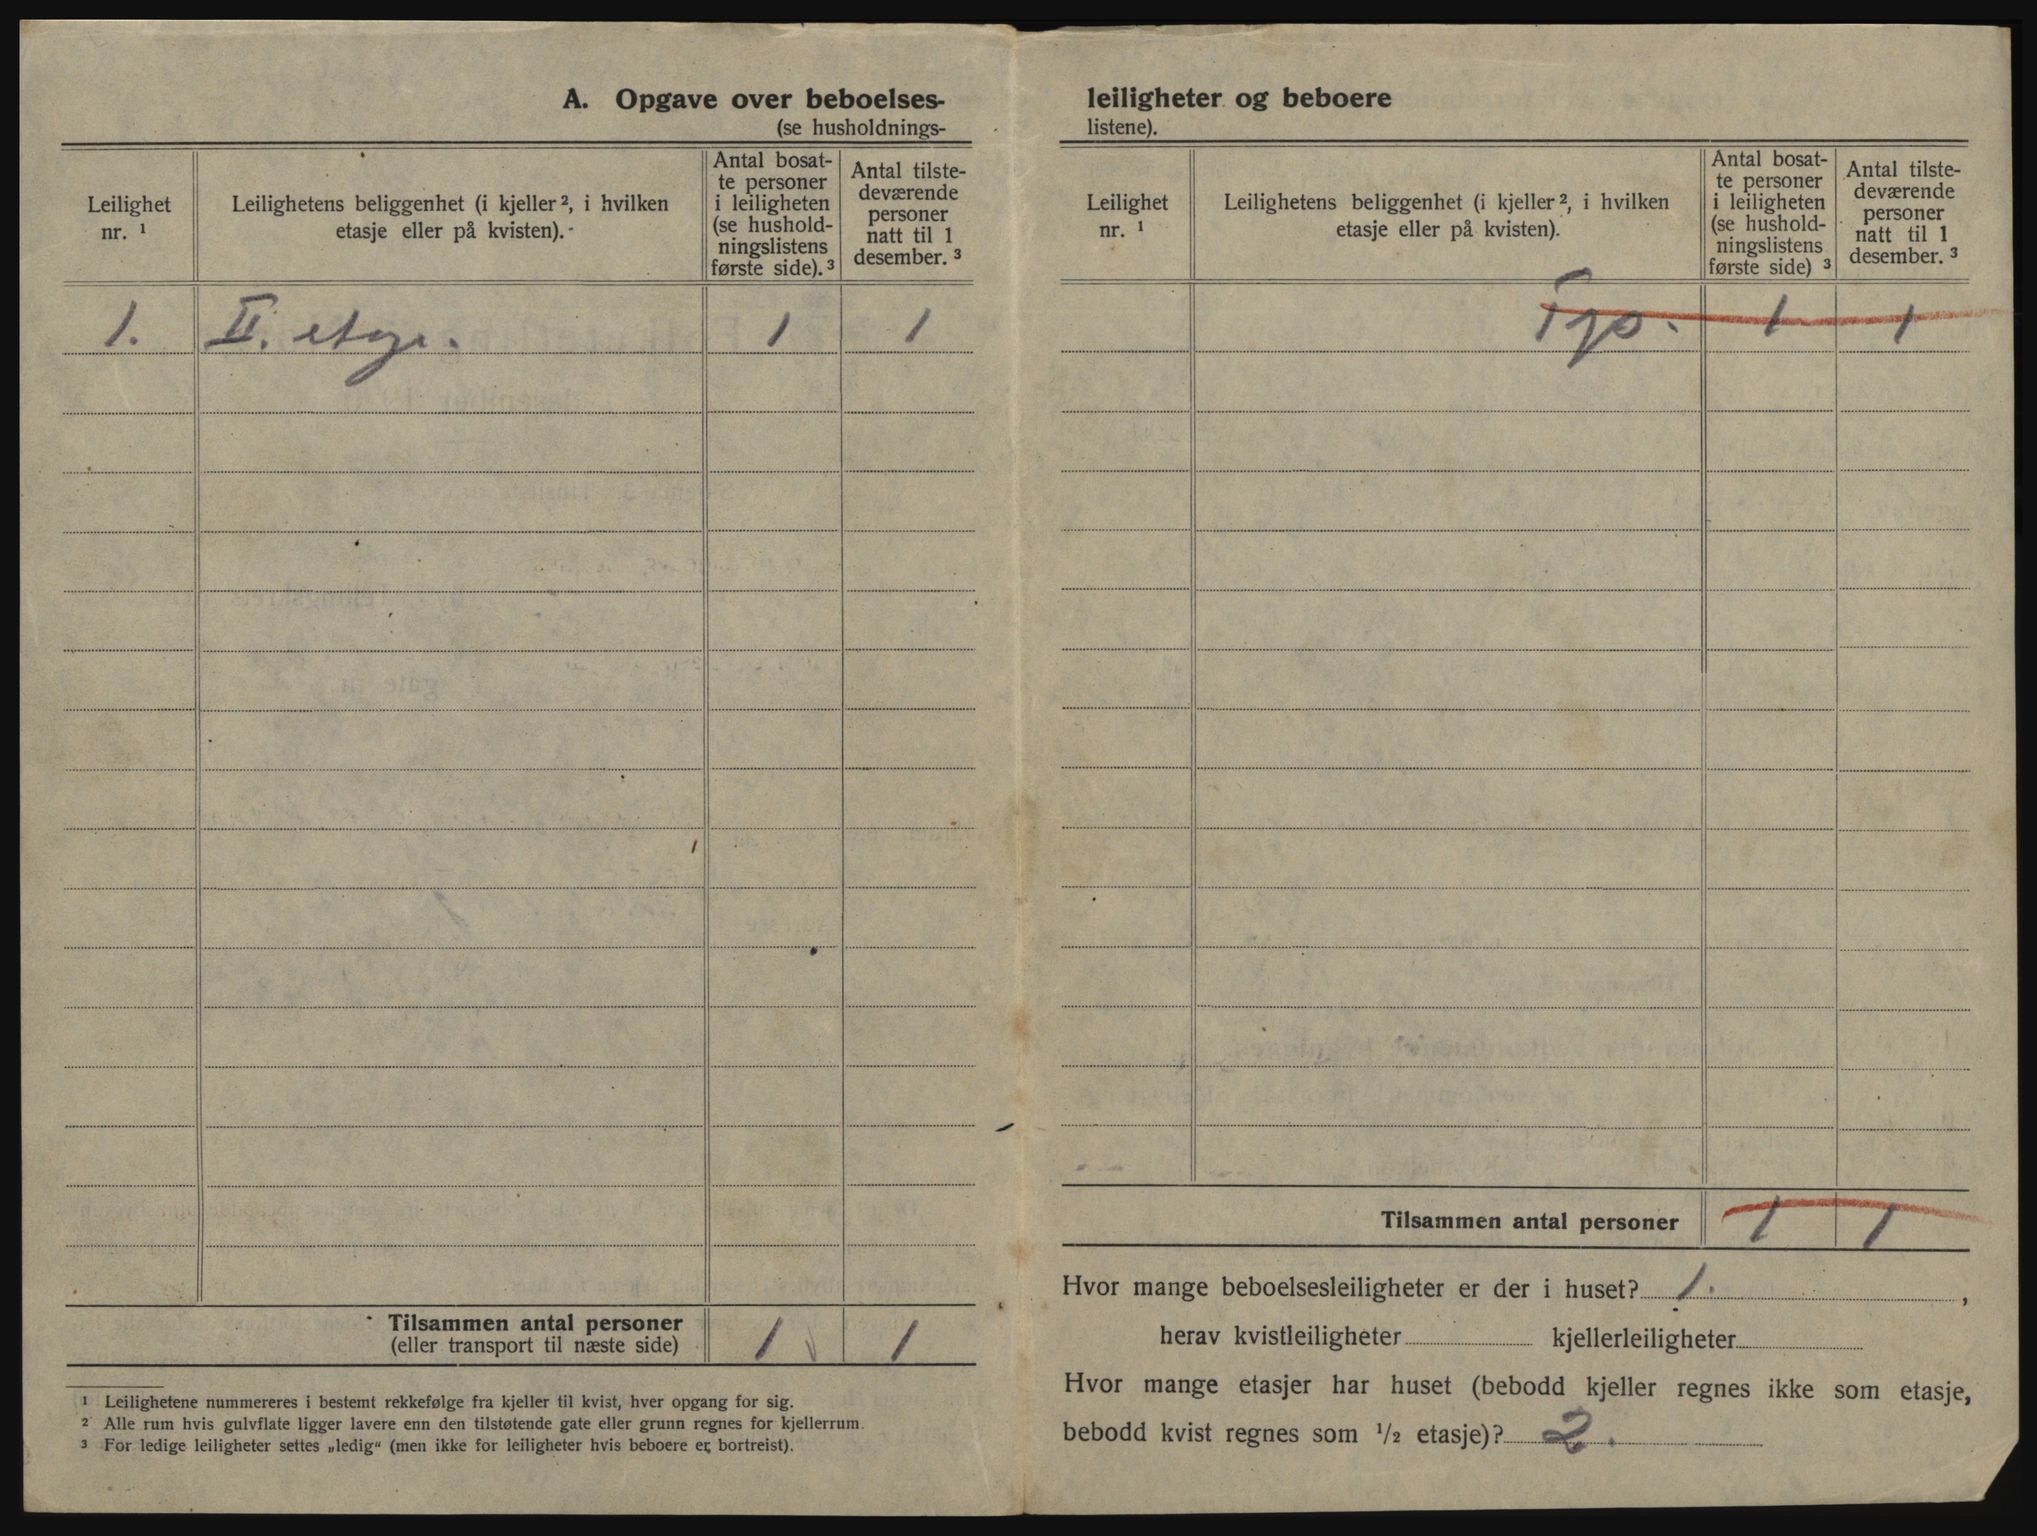 A. Opgave over beboelses-
(se husholdnings-
Leilighet
nr. ¹
Leilighetens beliggenhet (i kjeller ², i hvilken
etasje eller på kvisten).
Antal bosat-
te personer
i leiligheten
(se hushold-
ningslistens
første side). ³
Antal tilste-
deværende
personer
natt til 1
desember. ³
1. II. etage. 1 1
Tilsammen antal personer
(eller transport til næste side) 1 1
¹ Leilighetene nummereres i bestemt rekkefølge fra kjeller til kvist, hver opgang for sig.
² Alle rum hvis gulvflate ligger lavere enn den tilstøtende gate eller grunn regnes for kjellerrum.
³ For ledige leiligheter settes „ledig“ (men ikke for leiligheter hvis beboere er bortreist).
leiligheter og beboere
listene).
Leilighet
nr. ¹
Leilighetens beliggenhet (i kjeller ², i hvilken
etasje eller på kvisten).
Antal bosat-
te personer
i leiligheten
(se hushold-
ningslistens
første side) ³
Antal tilste-
deværende
personer
natt til 1
desember. ³
1 1
Tilsammen antal personer 1 1
Hvor mange beboelsesleiligheter er der i huset? 1. ,
herav kvistleiligheter kjellerleiligheter
Hvor mange etasjer har huset (bebodd kjeller regnes ikke som etasje,
bebodd kvist regnes som ½ etasje)? 2.